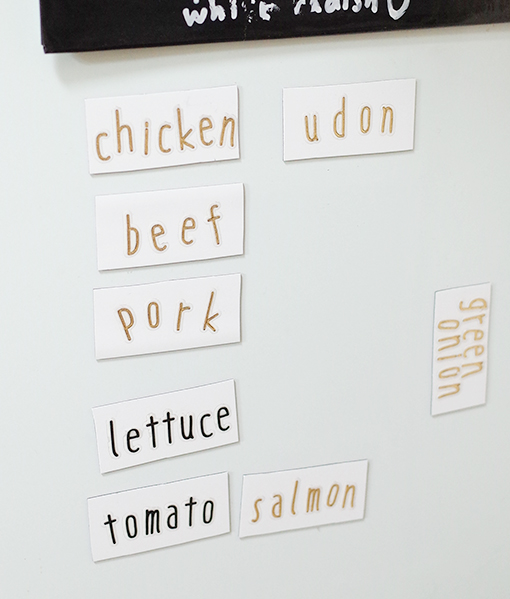 white radish
chicken
udon
beef
pork
green
onion
lettuce
tomato
salmon